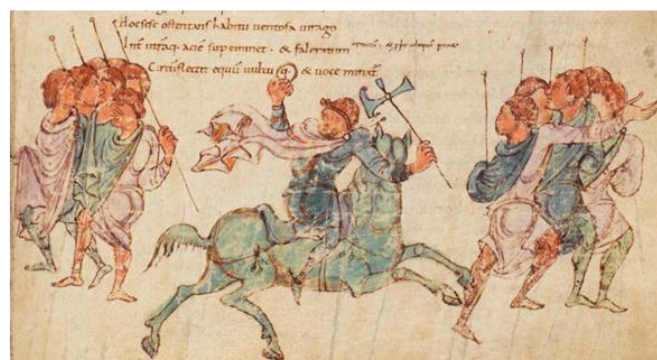 Hoc sese ostentans habitu uentosa uirago
Int utraq· aciē supeminet · & faleratum
Circūflectit equū uultu q· & uoce minat